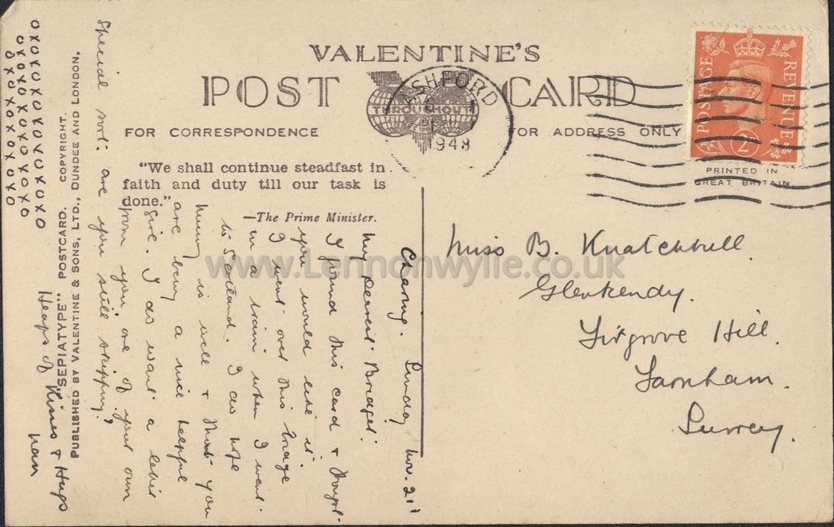 VALENTINE'S
POST CARD
THROUGHOUT
FOR CORRESPONDENCE
FOR ADDRESS ONLY
"We shall continue steadfast in
faith and duty till our task is
done."
—The Prime Minister.
ASHFORD
1948
POSTAGE REVENUE
2D
PRINTED IN
GREAT BRITAIN
Charing. Sunday Nov. 21st
My dearest Bridget.
I found this card & thought
you would like it.
I went over this bridge
in a train when I went
to Scotland. I do hope
Mummy is well & that you
are being a nice helpful
girl. I do want a letter
from you, one of your own
special sort: are you still skipping?
Heaps of Kisses & Hugs
oxoxoxoxoxoxoxo
oxoxoxoxoxoxo
oxoxoxoxoxo
"SEPIATYPE" POSTCARD. COPYRIGHT.
PUBLISHED BY VALENTINE & SONS, LTD., DUNDEE AND LONDON.
Miss B. Knatchbull.
Glenkendy.
Firgrove Hill.
Farnham.
Surrey.
www.Lennonwylie.co.uk